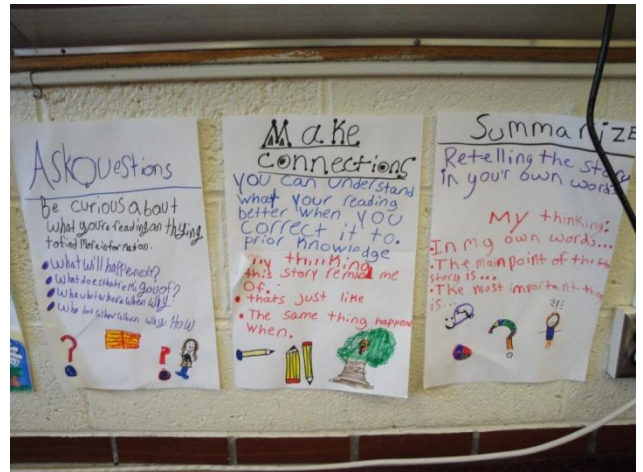 Ask Questions
Be curious about
what you're reading an thying
to find More information.
What will happened?
What does that remi you of?
Who but where when why How
Make
connections
you can understand
what your reading
better when you
correct it to
prior knowledge
My thinking
this story remind me
Of...
thats just like
The same thing happen
when.
Summarize
Retelling the story
in you'r own words
My thinking:
In my own words...
The main point of the
story is ...
The most important thing
is...